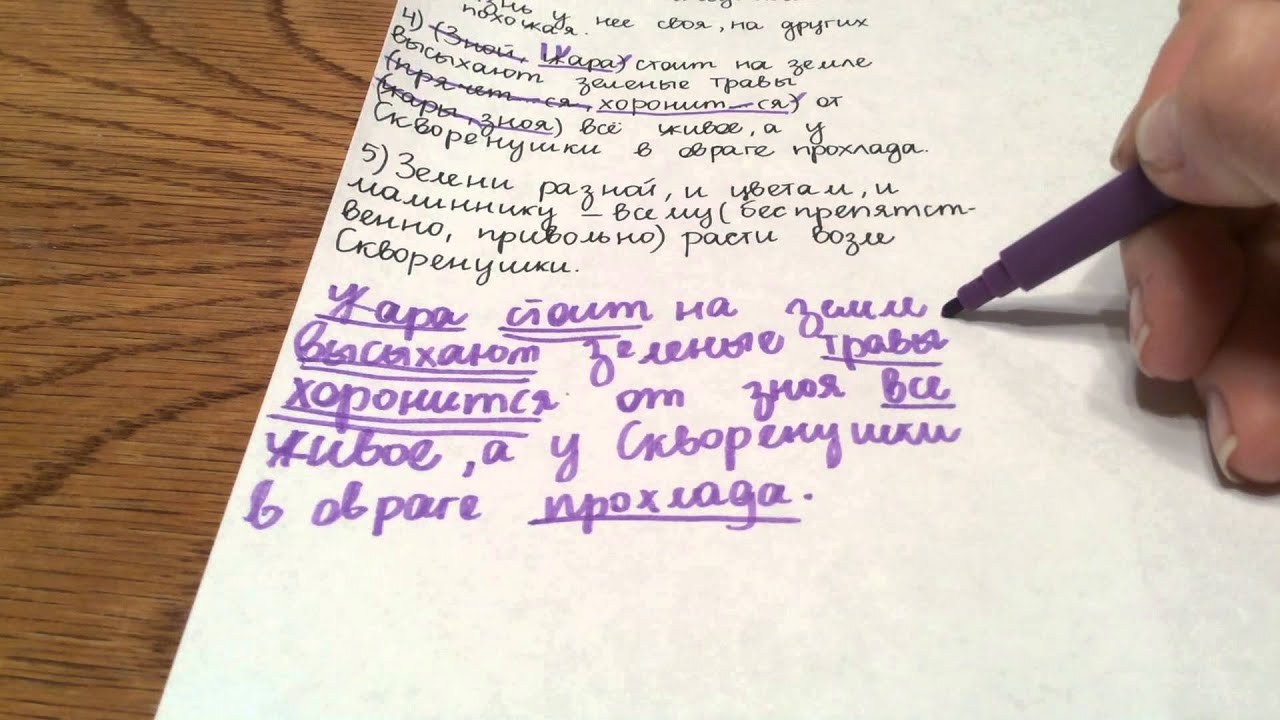 у нее своя, на других
похожая.
4) (Зной, Жара) стоит на земле
высыхают зеленые травы
(прячет-ся, хоронит-ся) от
(жары, зноя) всё живое, а у
Скворенушки в овраге прохлада.
5) Зелени разной, и цветам, и
малиннику – всему (беспрепятст-
венно, привольно) расти возле
Скворенушки.
Жара стоит на земле
высыхают зеленые травы
хоронится от зноя все
живое, а у Скворенушки
в овраге прохлада.